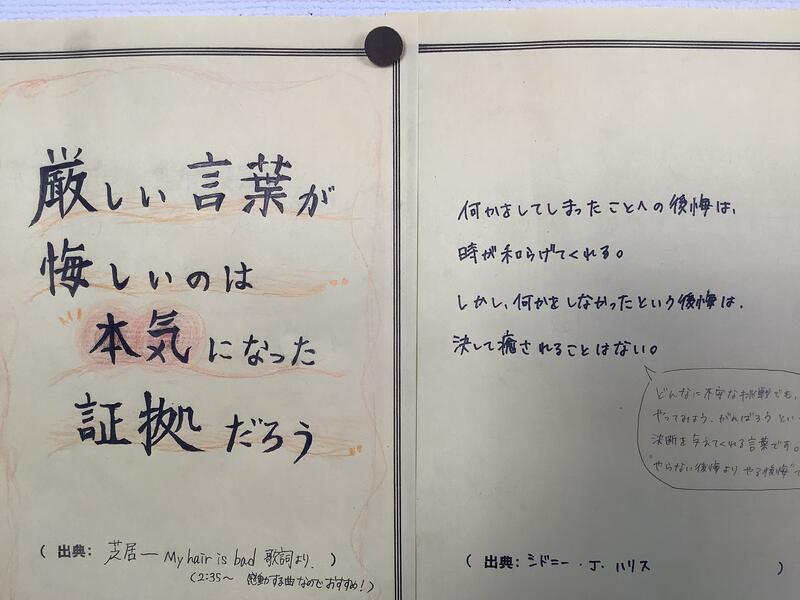 厳しい言葉が
悔しいのは
本気になった
証拠だろう
(出典: 芝居ー My hair is bad 歌詞より.)
(2:35〜 感動する曲なのでおすすめ!)
何かをしてしまったことへの後悔は、
時が和らげてくれる。
しかし、何かをしなかったという後悔は、
決して癒されることはない。
どんなに不安な挑戦でも、
やってみよう、がんばろうとい
決断を与えてくれる言葉です。
"やらない後悔よりやる後悔"で
(出典: シドニー・J. ハリス)